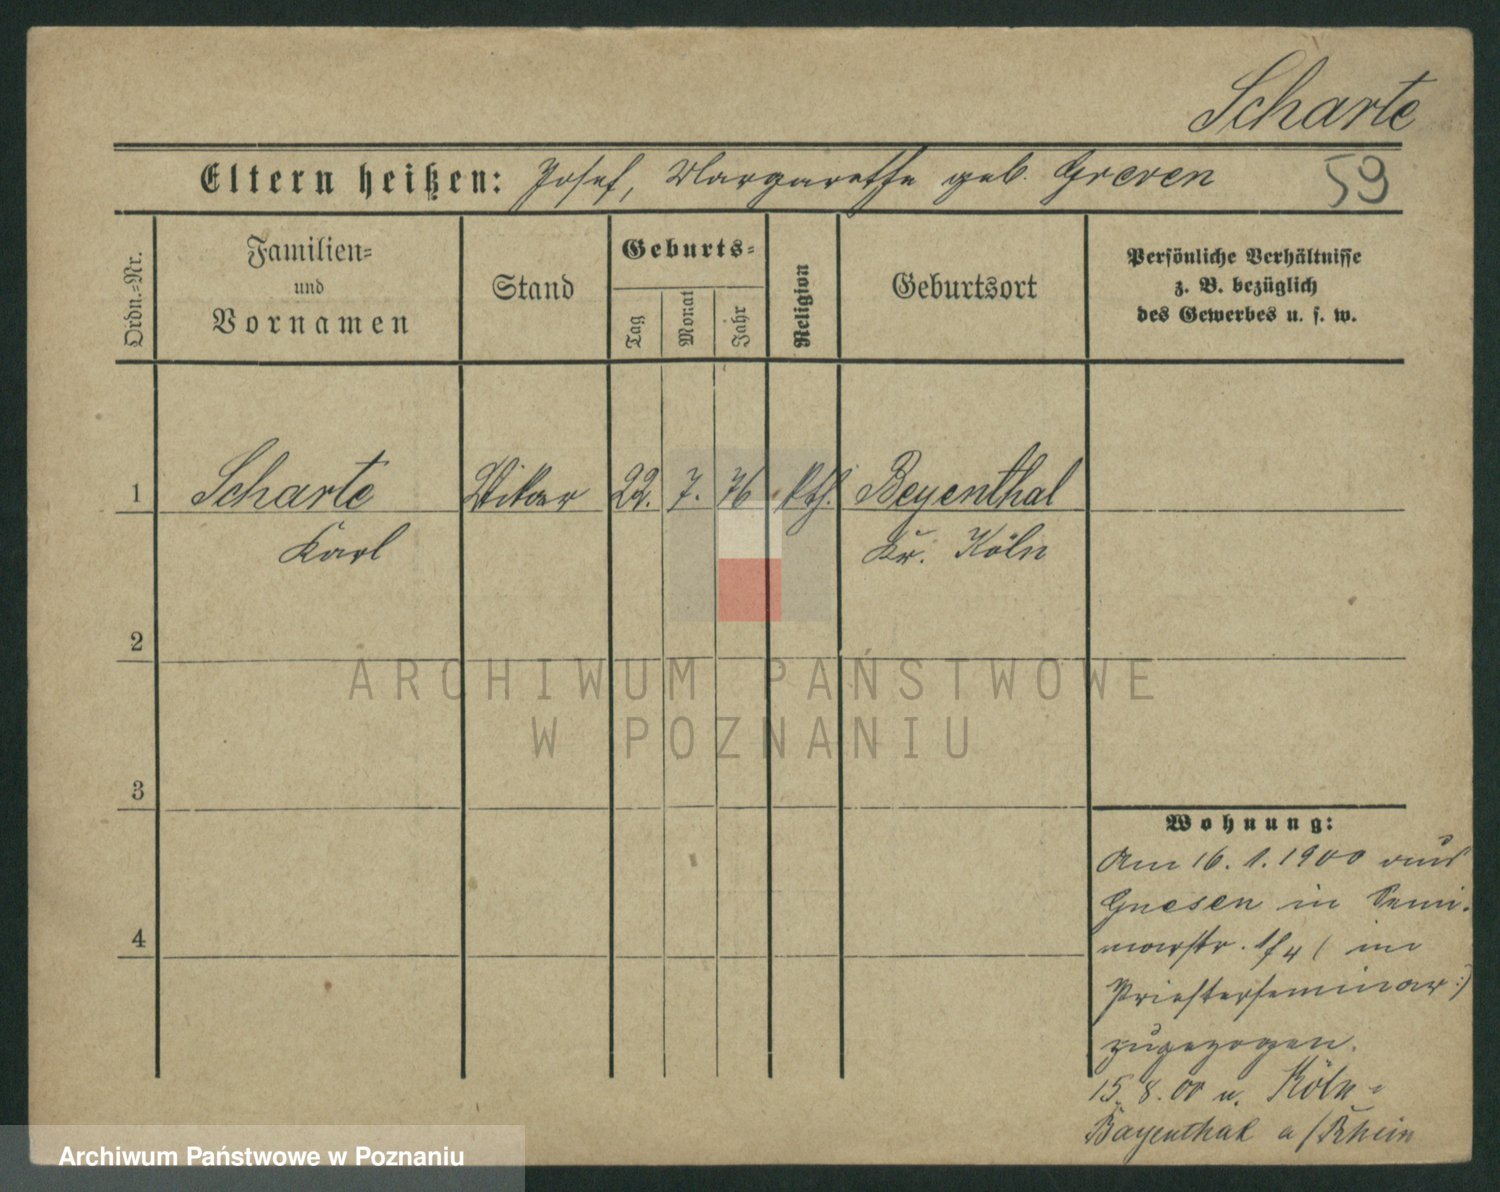 Scharte
Eltern heißen: Josef, Margarethe geb. Greven 59
Ordn.-Nr.
Familien-
und
Vornamen
Stand
Geburts-
Tag
Monat
Jahr
Religion
Geburtsort
Persönliche Verhältnisse
z. B. bezüglich
des Gewerbes u. s. w.
1 Scharte Vikar 22. 7. 76 kth. Beyenthal
Karl Kr. Köln
2
3
4
Wohnung:
Am 16. 1. 1900 aus
Gnesen in Semi-
narstr. 1/4 (im
Priesterseminar:)
zugezogen.
15.8.00 n. Köln-
Bayenthal a/Rhein
ARCHIWUM PAŃSTWOWE
W POZNANIU
Archiwum Państwowe w Poznaniu